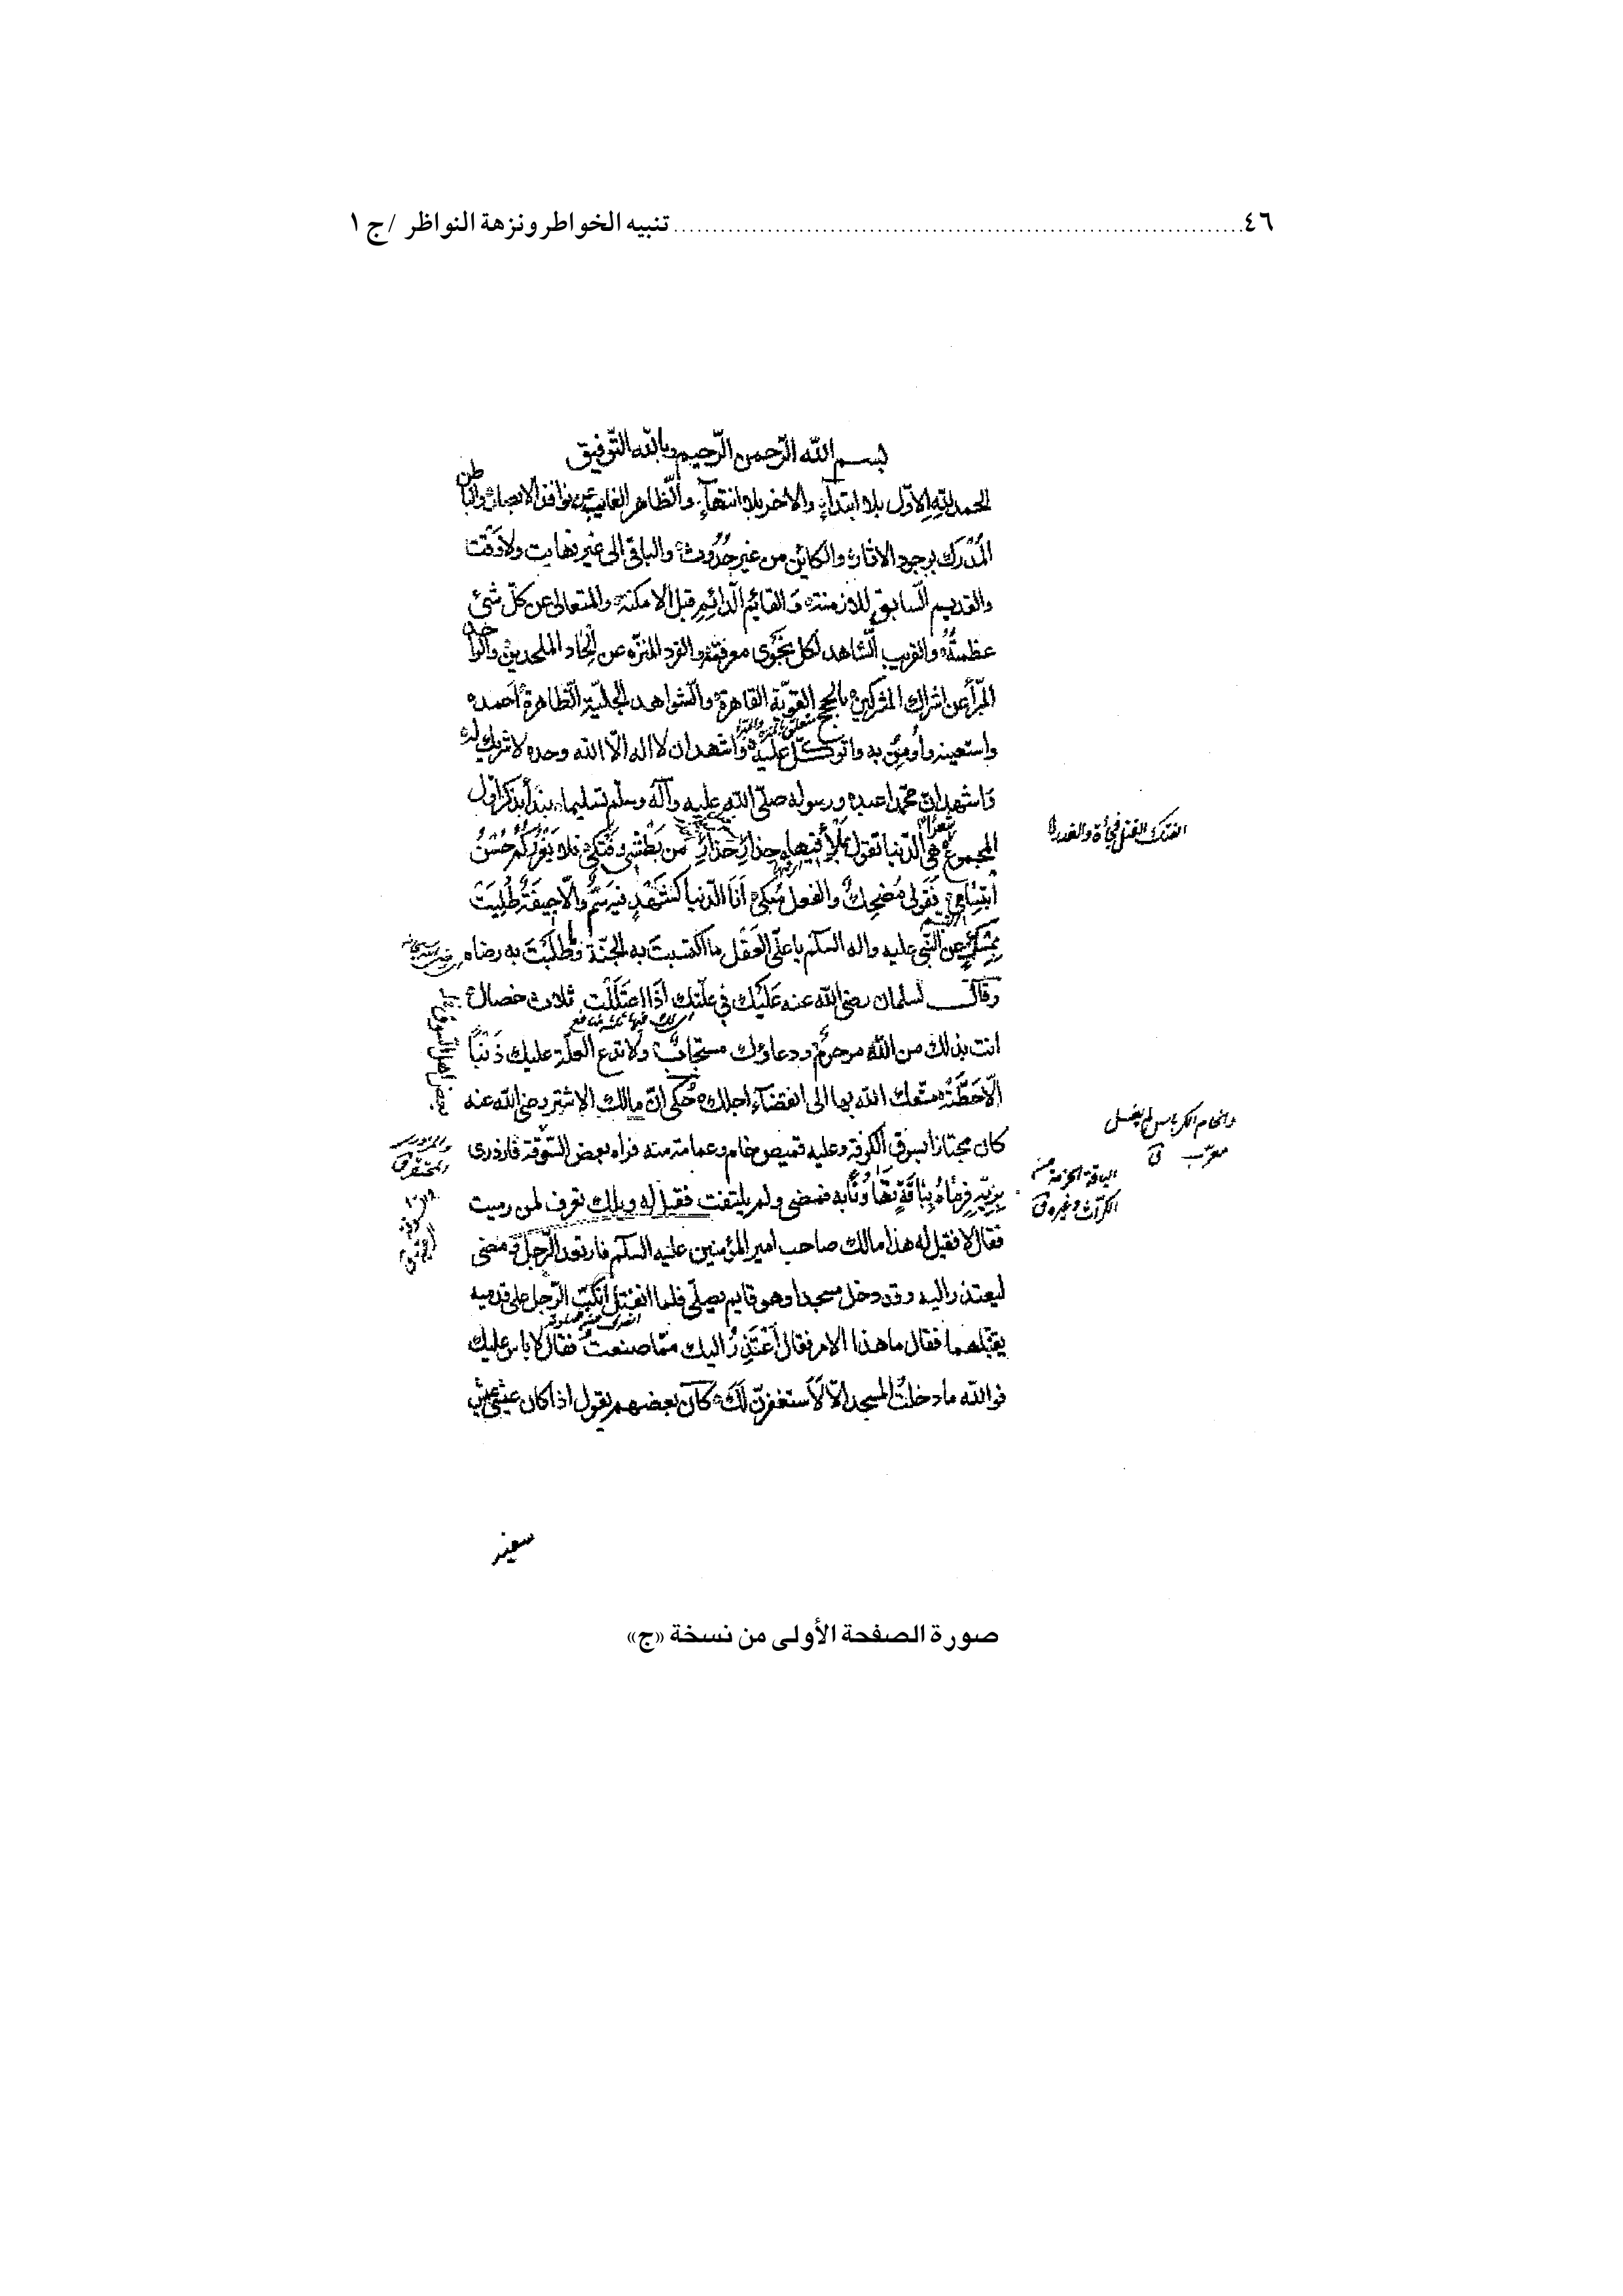 ٤٦ ........ تنبيه الخواطر ونزهة النواظر / ج ١
بسم الله الرحمن الرحيم وبالله التوفيق
الحمد لله الاوّل بلا ابتدآءٍ والاخر بلا انتهآءٍ والظاهر الغايب عن نوافذ الابصار والباطن
المُدْرَك بوجود الاثار والكائن من غير حُدُوث والباقى الى غير نهايت ولا وَقْت
والقديم السّابق للازمنة والقائم الدّائم قبل الامكنة والمتعالى عن كلّ شئ
عظمةً والقريب الشّاهد لكل نَجْوى معرفة والفرد المنزّه عن اِلْحاد الملحدين والواحد
المبرّأ عن اشراك المشركين بالحجج القويّة القاهرة والشّواهد الجليّة الظاهرة احمده
واستعينه وأومِن به واتوكّل عليه واشهد ان لا اله الّا الله وحده لا شريك له
واشهد انّ محمّدا عبده ورسوله صلّى الله عليه وآله وسلّم تسليما نبدأ بذكر اوّل
المجموع هى الدّنيا تقول بملأ فيها حذارِ حذارِ من بَطْشى وفَتْكى فلا يَغْرُرْكُم حُسْنُ
ابتِسَامى فَقولى مُضحِكٌ والفعل مُبكى اَنَا الدّنيا كشَهْدٍ فيه سَمٌّ والّا جِيفَةٌ طُلِيَتْ
بِمِسْكٍ عن النّبى عليه واله السلام يا علىّ العَقْل ما اكتسبتَ به الجنّة وطَلَبْتَ به رضاه
وقال لسلمان رضى الله عنه عَلَيْك فى علّتك اذا اعتَلَلْتَ ثلاث خصال
انت بذلك من الله مرحومٌ ودعاؤك مستجابٌ ولا تدع العلّة عليك ذَنْبًا
الّا حَطَّتْهُ متّعك الله بها الى انقضآءِ اجلك حُكى انّ مالك الاشتر رضى الله عنه
كان مجتازا بسوق الكوفة وعليه قميص خام وعمامة منه فراه بعض السُّوقة فازدرى
بزيّه فرماهُ ببَاقَةٍ تهاونًا به فمضى ولم يلتفت فقيل له ويلك تعرف لمن رميت
فقال لا فقيل له هذا مالك صاحب امير المؤمنين عليه السلام فارتعد الرّجل ومضى
ليعتذر اليه وقد دخل مسجدا وهو قايم يصلّى فلما انفتل انكبّ الرّجل على قدميه
يقبّلهما فقال ما هذا الامر فقال أعْتَذِرُ اليك ممّا صنعتُ فقال لا باس عليك
فوالله ما دخلتُ المسجد الّا لاَستغفرنّ لَكَ كان بعضهم يقول اذا كان
الفتك القتل فجأة والغدر
والخام الكرباس لم يغسل
معرّب ق
الباقة الحزمة من
الكرّاث وغيره ق
بعض اهل السوق
صورة الصفحة الأولى من نسخة «ج»